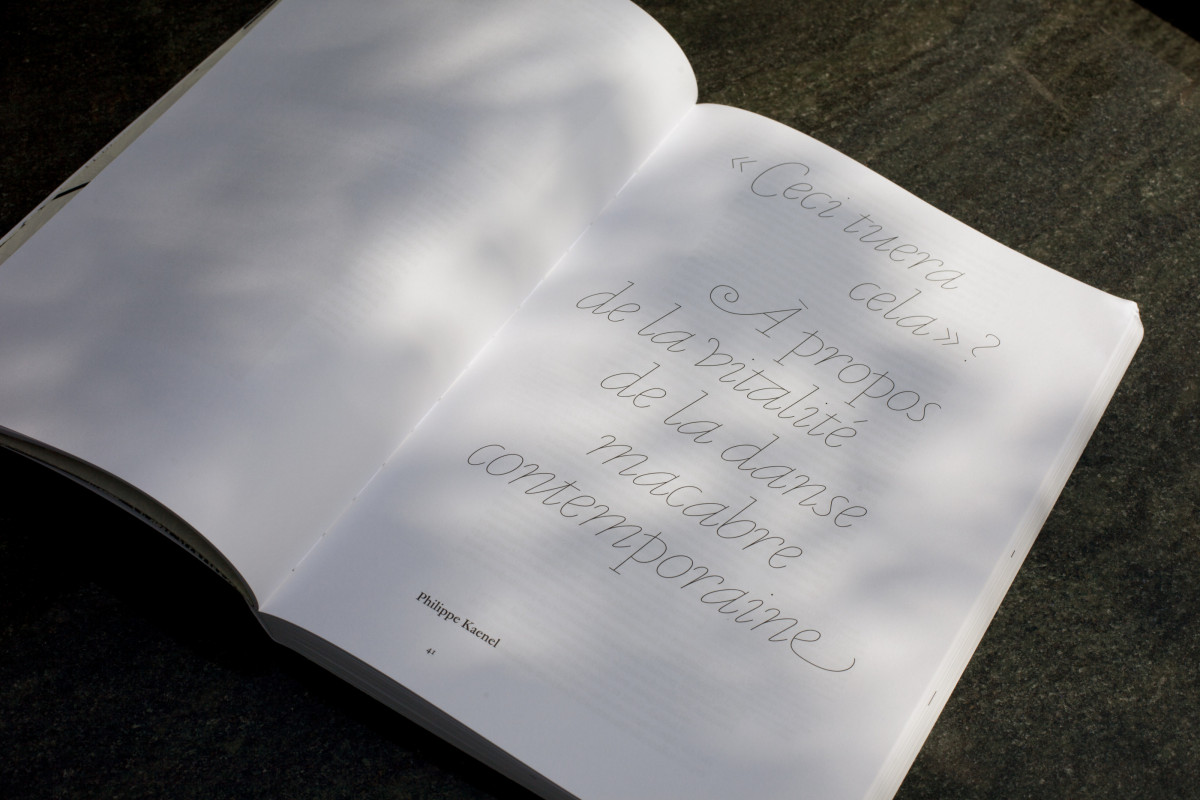 «Ceci tuera
cela»?
À propos
de la vitalité
de la danse
macabre
contemporaine
Philippe Kaenel
41